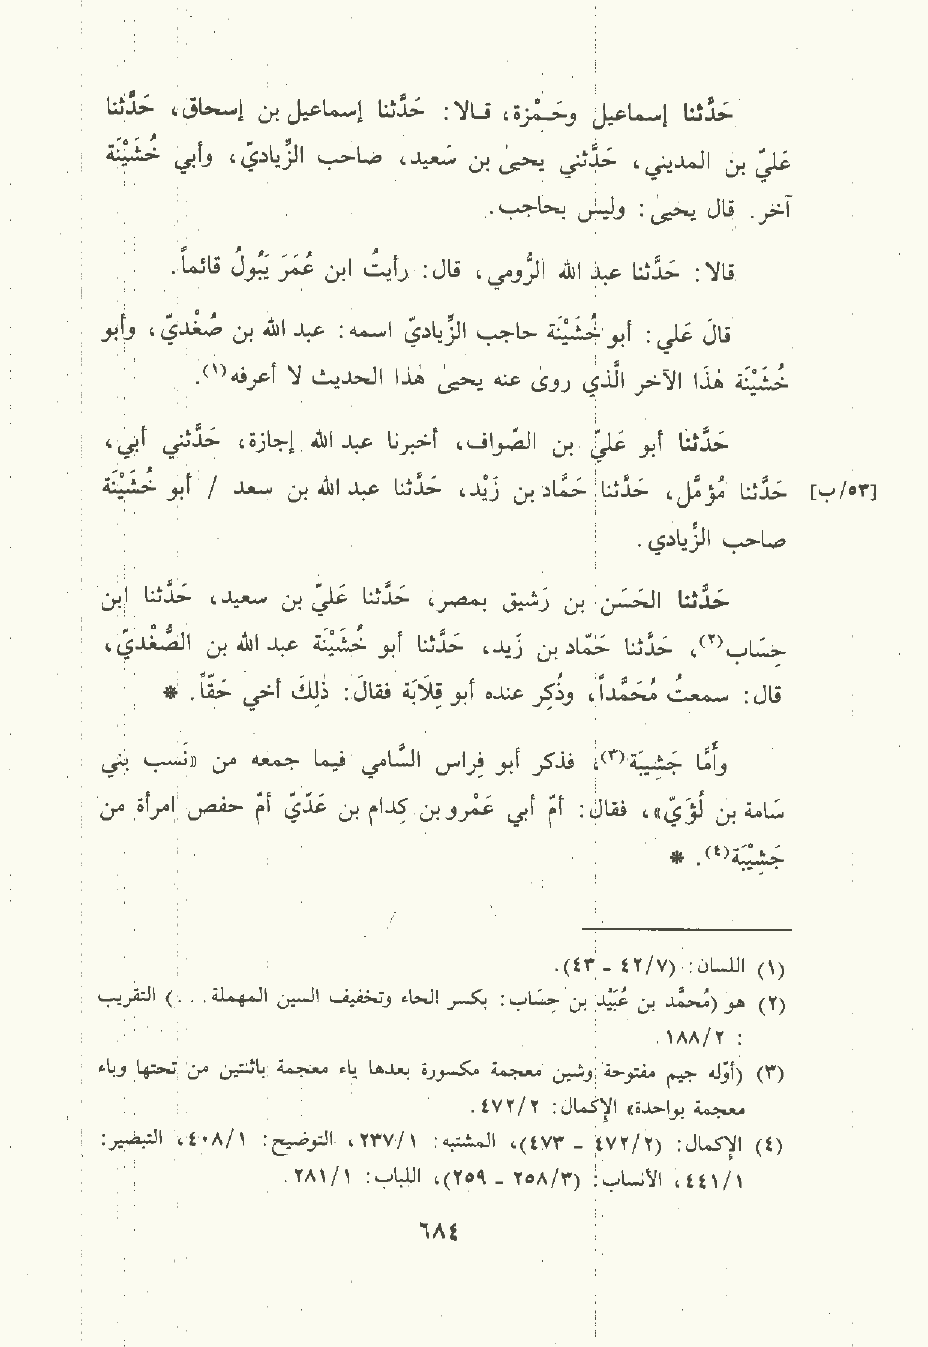 حَدَّثنا إسماعيل وحَـمْزة، قـالا: حَدَّثنا إسماعيل بن إسحاق، حَدَّثنا
عَليّ بن المديني، حَدَّثني يحيىٰ بن سَعيد، صاحب الزِّياديّ، وأبي خُشَيْنَة
آخر. قال يحيىٰ: وليس بحاجب.
قالا: حَدَّثنا عبد الله الرُّومي، قال: رأيتُ ابن عُمَرَ يَبُولُ قائماً.
قَالَ عَلي: أبو خُشَيْنَة حاجب الزِّياديّ اسمه: عبد الله بن صُغْديّ، وأبو
خُشَيْنَة هٰذا الآخر الَّذي روىٰ عنه يحيىٰ هٰذا الحديث لا أعرفه(١).
حَدَّثنا أبو عَليّ بن الصوّاف، أخبرنا عبد الله إجازة، حَدَّثني أبي،
[٥٣/ب] حَدَّثنا مُؤمَّل، حَدَّثنا حَمَّاد بن زَيْد، حَدَّثنا عبد الله بن سعد / أبو خُشَيْنَة
صاحب الزِّيادي.
حَدَّثنا الحَسَن بن رَشيق بمصر، حَدَّثنا عَليّ بن سعيد، حَدَّثنا ابن
حِسَاب(٢)، حَدَّثنا حَمَّاد بن زَيد، حَدَّثنا أبو خُشَيْنَة عبد الله بن الصُّغْديّ،
قال: سمعتُ مُحَمَّداً، وذُكِر عنده أبو قِلَابَة فقالَ: ذٰلِكَ أخي حَقّاً. *
وأَمَّا جَشِيبَة(٣)، فذكر أبو فِراس السَّامي فيما جمعه من «نَسب بني
سَامة بن لُؤَيّ»، فقال: أمّ أبي عَمْرو بن كِدام بن عَدّيّ أمّ حفص امرأة من
جَشِيْبَة(٤). *
(١) اللسان: (٧/٤٢ ـ ٤٣).
(٢) هو (مُحمَّد بن عُبَيْد بن حِسَاب: بكسر الحاء وتخفيف السين المهملة...) التقريب
: ٢/١٨٨.
(٣) (أوّله جيم مفتوحة وشين معجمة مكسورة بعدها ياء معجمة باثنتين من تحتها وباء
معجمة بواحدة» الإكمال: ٢/٤٧٢.
(٤) الإكمال: (٢/٤٧٢ ـ ٤٧٣)، المشتبه: ١/٢٣٧، التوضيح: ١/٤٠٨، التبضير:
١/٤٤١، الأنساب: (٣/٢٥٨ ـ ٢٥٩)، اللباب: ١/٢٨١.
٦٨٤